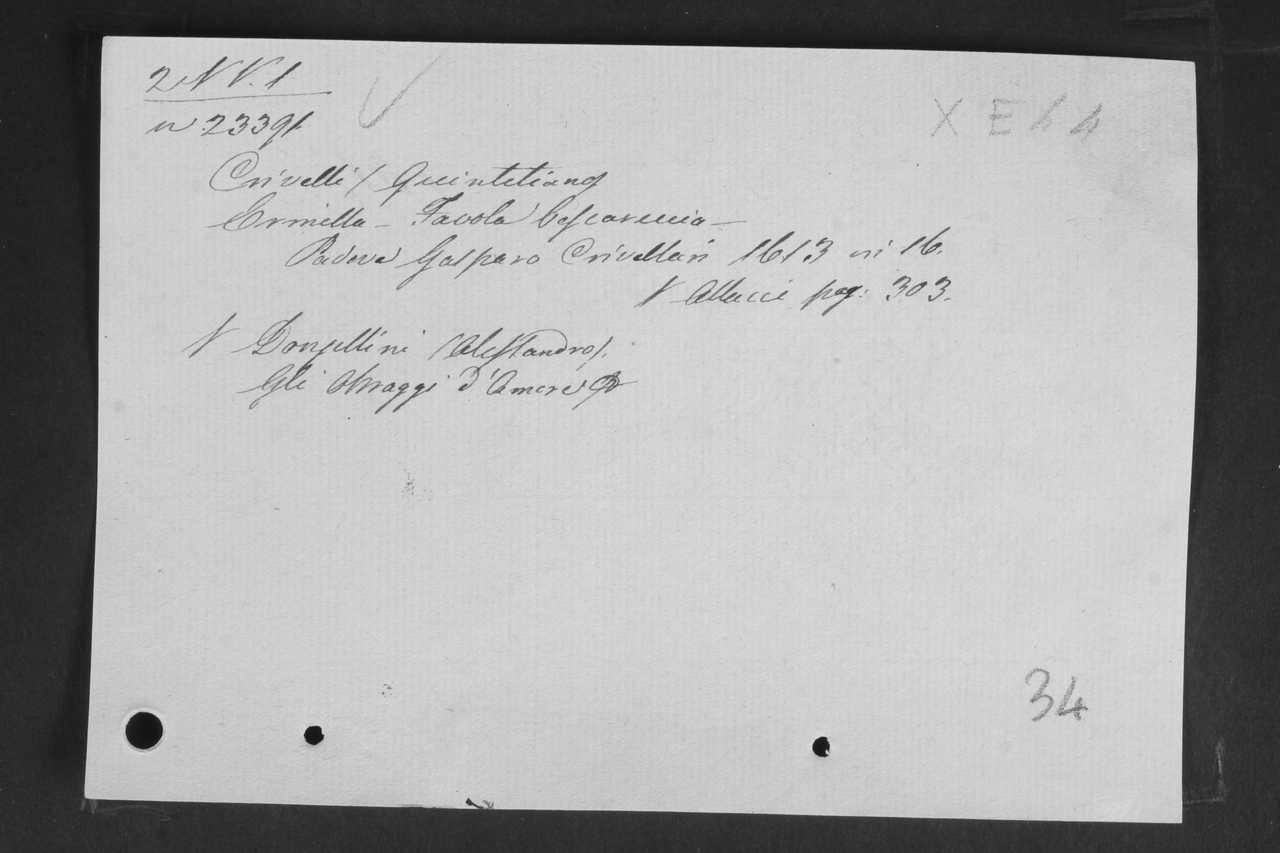 2 N V. 1
n 2339/.
X E 44
Crivelli / Quintiliano/
Ermilla - Favola boscareccia -
Padova Gasparo Crivellari 1613 in 16.
V Allacci pag: 303.
V Donzellini /Alessandro/.
Gli Oltraggi d'Amore
34